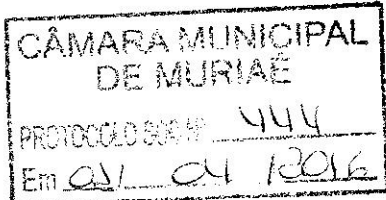 CÂMARA MUNICIPAL
DE MURIAÉ
PROTOCOLO SOB Nº 444
Em 01/ 04 /2016